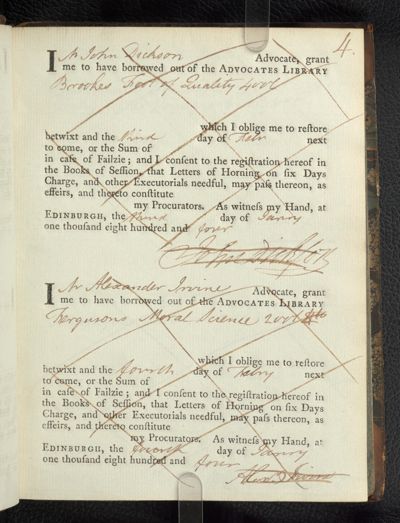 4.
I Mr John Dickson Advocate, grant
me to have borrowed out of the ADVOCATES LIBRARY
Brookes Fool of Quality 4 vols
which I oblige me to reſtore
betwixt and the third day of Febry next
to come, or the Sum of
in caſe of Failzie; and I conſent to the regiſtration hereof in
the Books of Seſſion, that Letters of Horning on ſix Days
Charge, and other Executorials needful, may paſs thereon, as
effeirs, and thereto conſtitute
my Procurators. As witneſs my Hand, at
EDINBURGH, the third day of Janry
one thouſand eight hundred and four
John Dickson
I Mr Alexander Irvine Advocate, grant
me to have borrowed out of the ADVOCATES LIBRARY
Fergusons Moral Science 2 vols
which I oblige me to reſtore
betwixt and the fourth day of Febry next
to come, or the Sum of
in caſe of Failzie; and I conſent to the regiſtration hereof in
the Books of Seſſion, that Letters of Horning on ſix Days
Charge, and other Executorials needful, may paſs thereon, as
effeirs, and thereto conſtitute
my Procurators. As witneſs my Hand, at
EDINBURGH, the fourth day of Janry
one thouſand eight hundred and four
Alexr Irvine